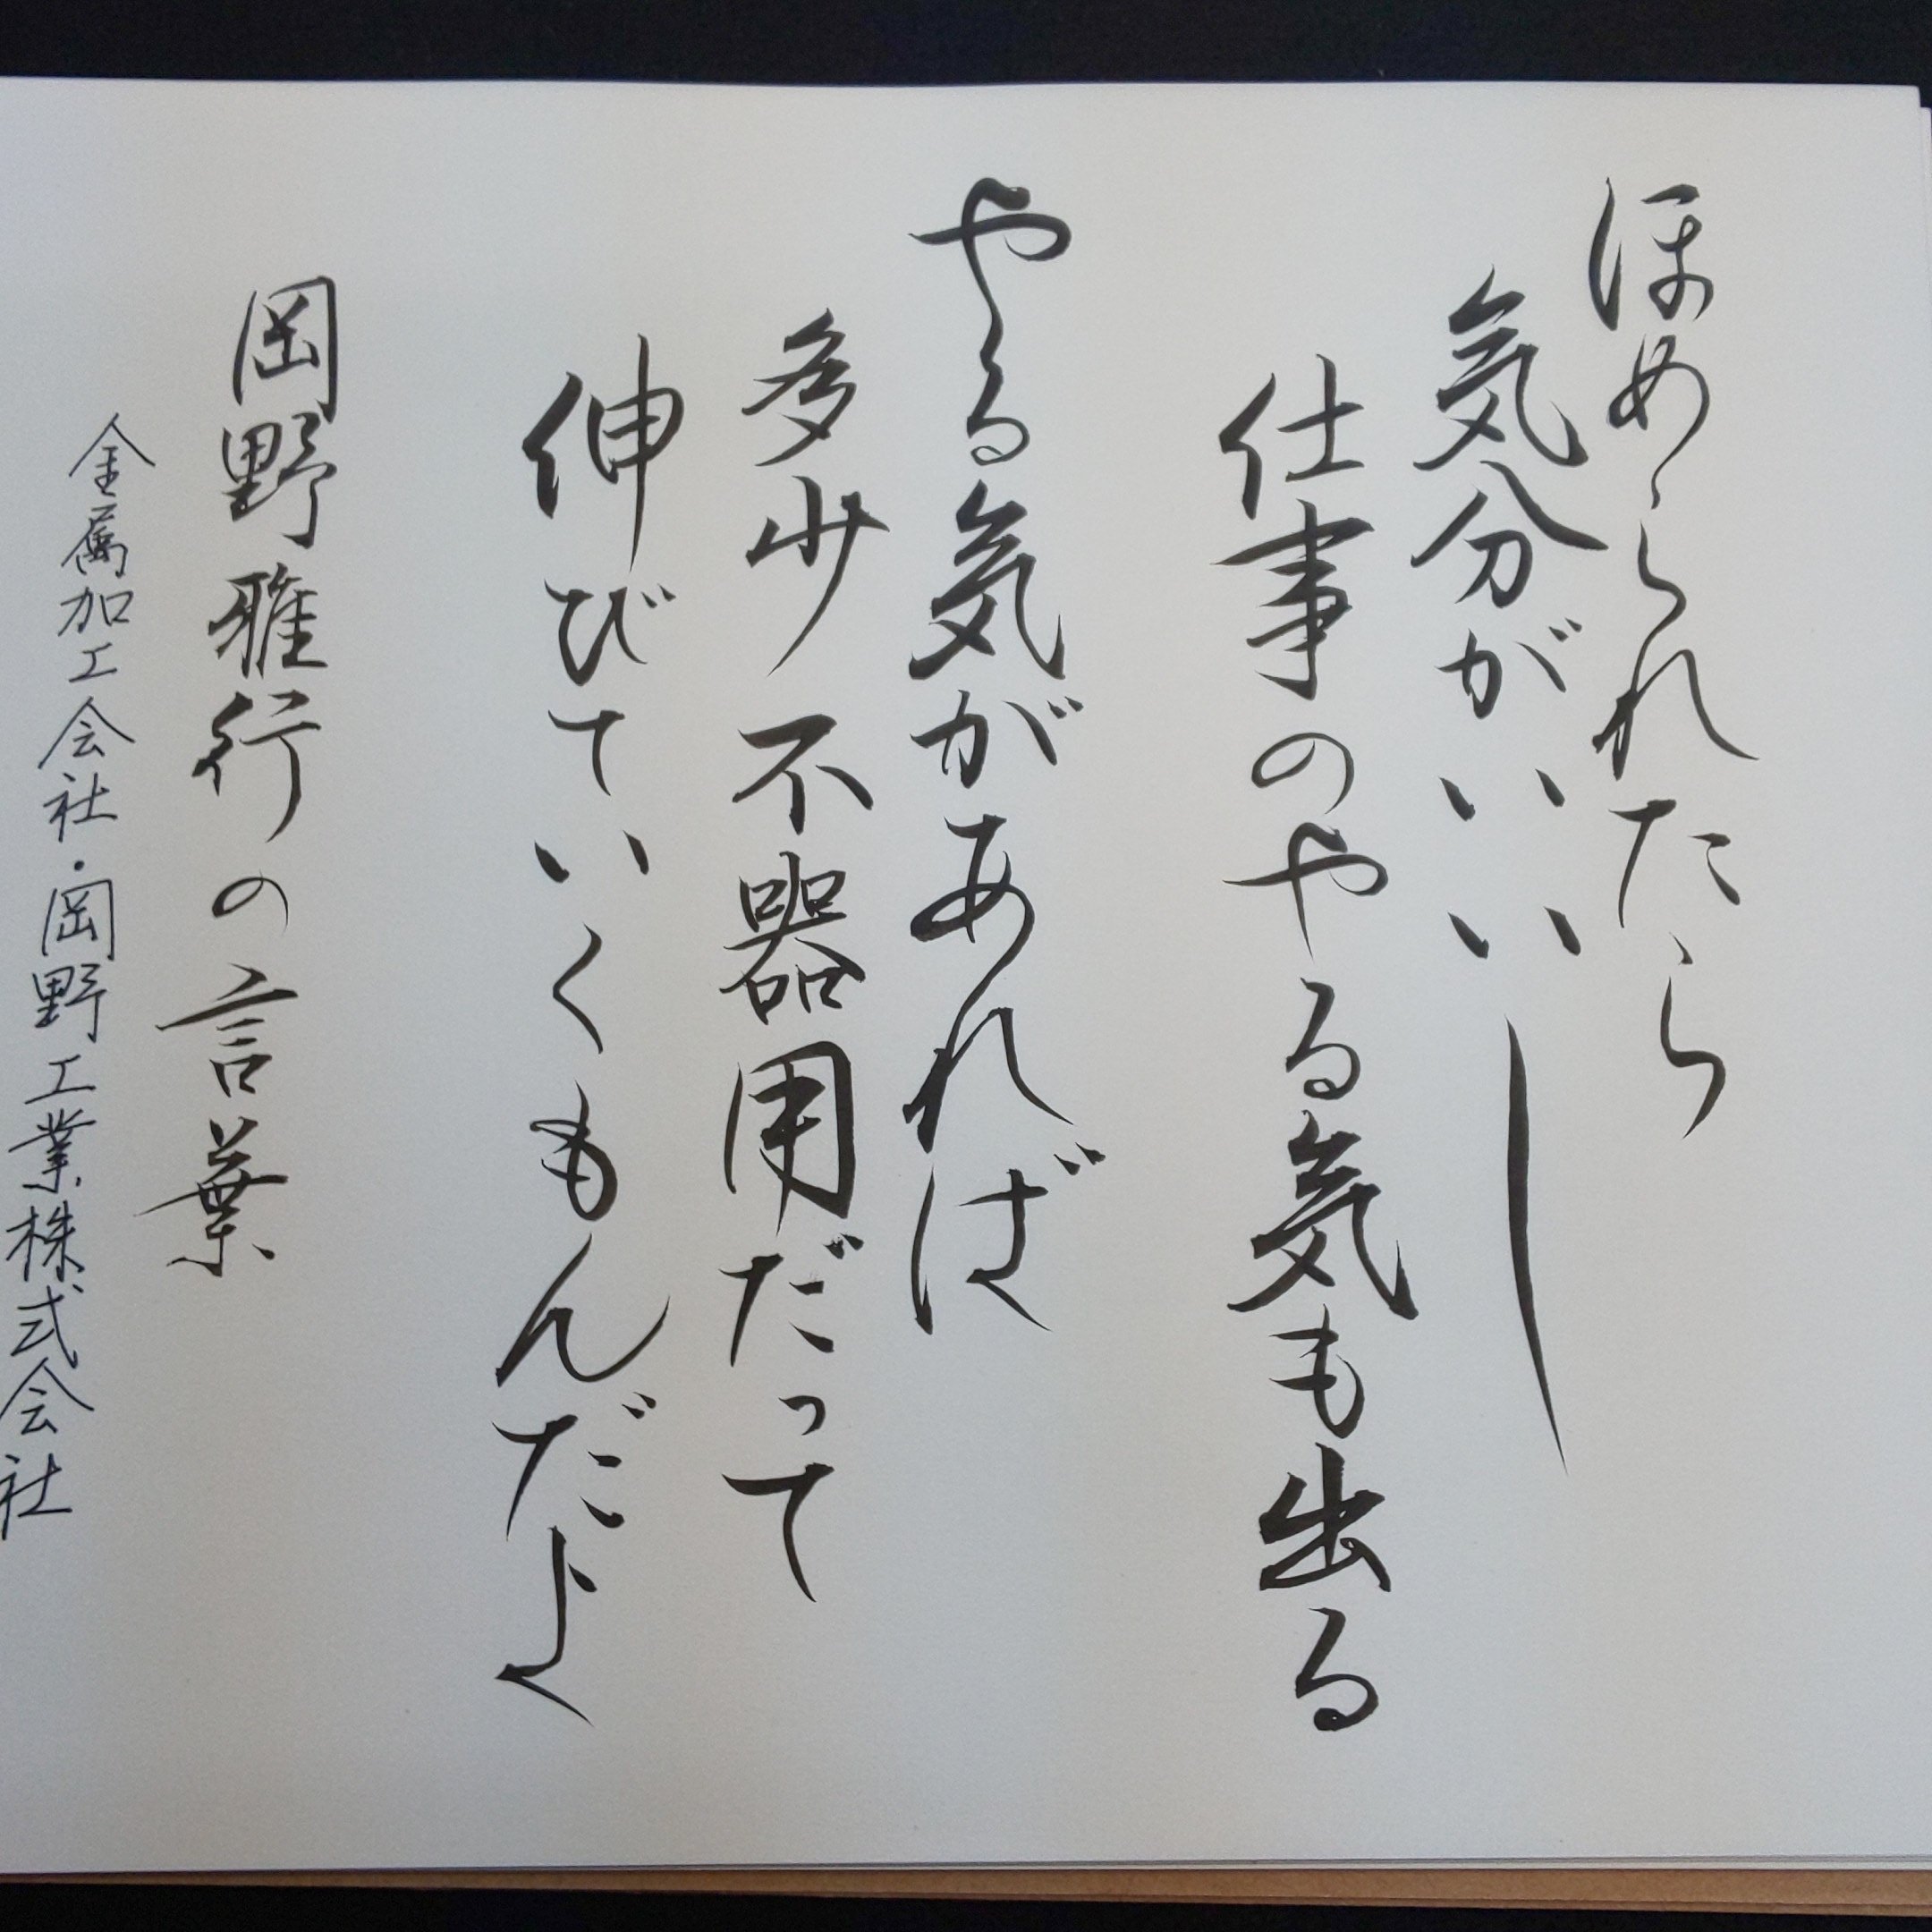 ほめられたら
気分がいいし
仕事のやる気も出る
やる気があれば
多少不器用だって
伸びていくもんだよ
岡野雅行の言葉
金属加工会社・岡野工業株式会社